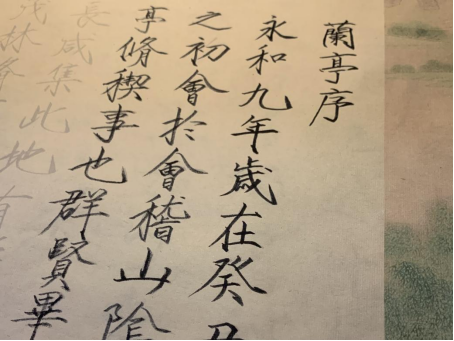 蘭亭序
永和九年歲在癸丑
之初會扵會稽山陰
亭脩稧事也群賢畢
長咸集此地有
茂林脩